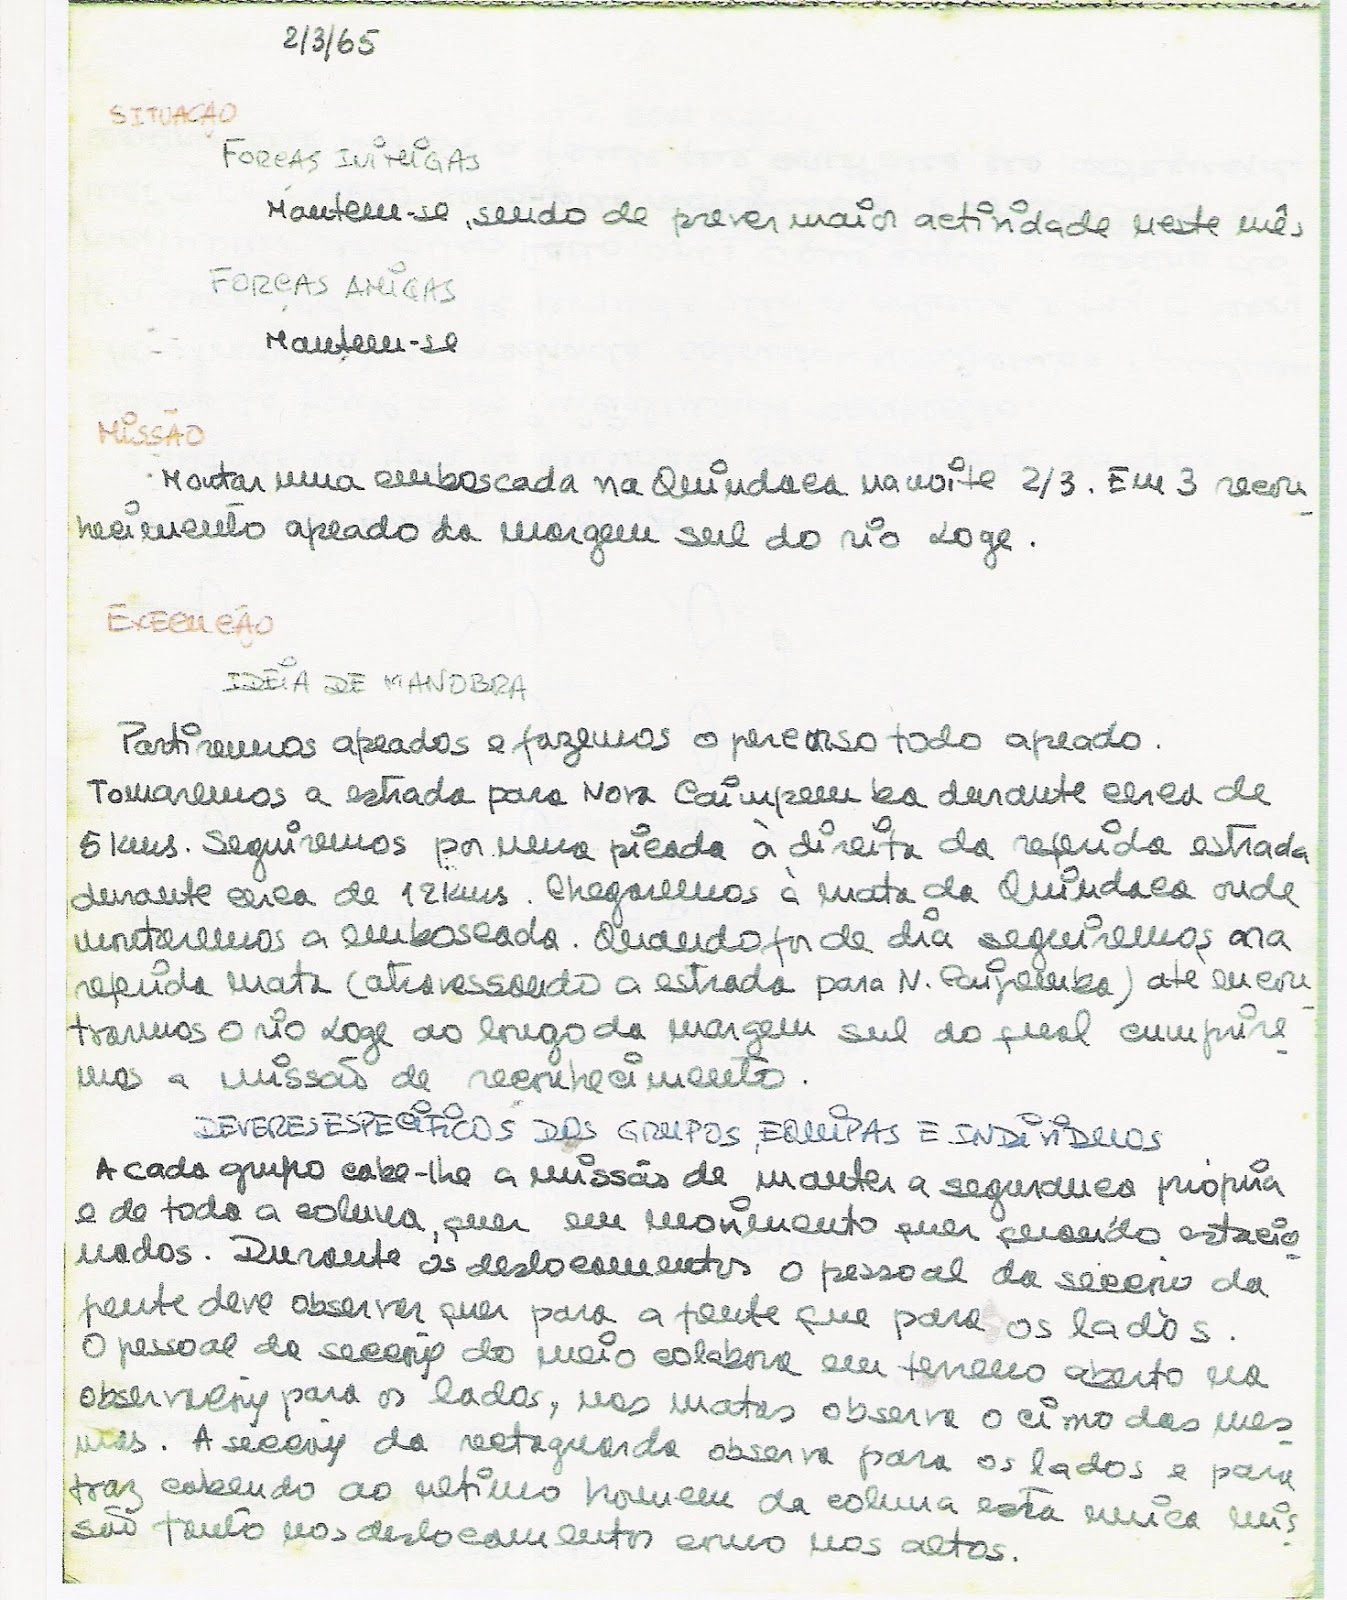 2/3/65
SITUAÇÃO
FORÇAS INIMIGAS
Mantem-se, sendo de prever maior actividade neste mês
FORÇAS AMIGAS
Mantem-se
MISSÃO
Montar uma emboscada na Quindaca na noite 2/3. Em 3 recon-
hecimento apeado da margem sul do rio Loge.
EXECUÇÃO
IDEIA DE MANOBRA
Partiremos apeados e fazemos o percurso todo apeado.
Tomaremos a estrada para Nova Caipemba durante cerca de
5 kms. Seguiremos por uma picada à direita da referida estrada
durante cerca de 12 kms. Chegaremos à mata da Quindaca onde
montaremos a emboscada. Quando for de dia seguiremos na
referida mata (atravessando a estrada para N. Caipemba) até encon-
trarmos o rio Loge ao longo da margem sul do qual cumprire-
mos a missão de reconhecimento.
DEVERES ESPECÍFICOS DOS GRUPOS, EQUIPAS E INDIVIDUOS
A cada grupo cabe-lhe a missão de manter a segurança própria
e de toda a coluna, quer em movimento quer quando estacio-
nados. Durante os deslocamentos o pessoal da secção da
frente deve observar quer para a frente que para os lados.
O pessoal da secção do meio colabora em terreno aberto na
observação para os lados, nas matas observa o cimo das mes-
mas. A secção da rectaguarda observa para os lados e para
traz cabendo ao ultimo homem da coluna esta unica mis-
são tanto nos deslocamentos como nos altos.